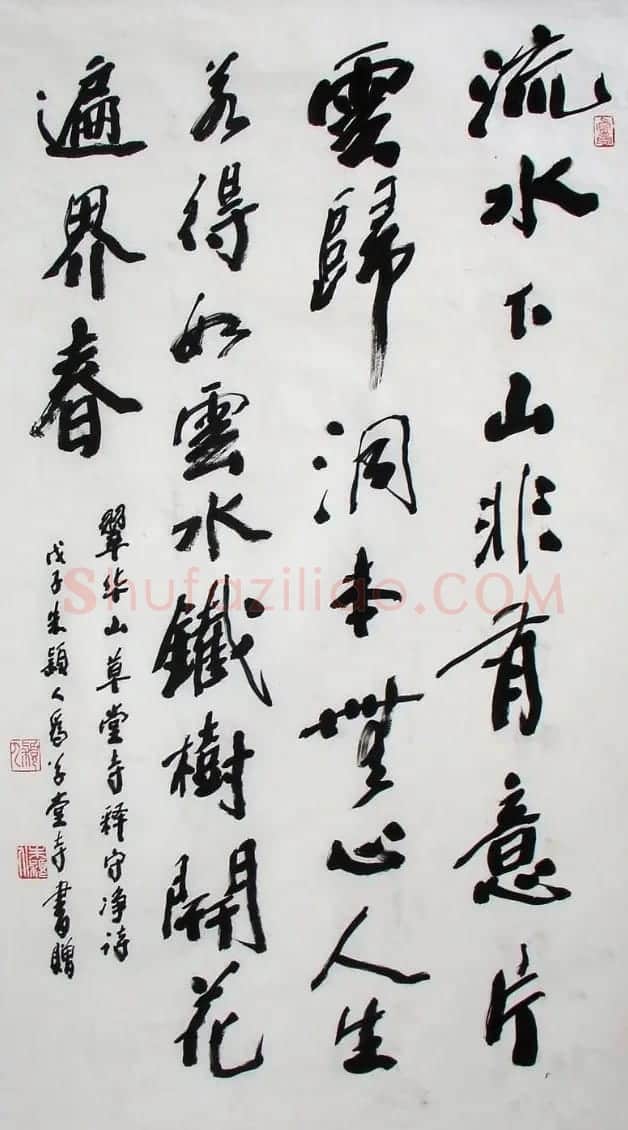 流水下山非有意片
雲歸洞本無心人生
若得如雲水鐵樹開花
遍界春
翠华山草堂寺释守净诗
戊子朱穎人爲草堂寺書贈
Shufaziliao.COM